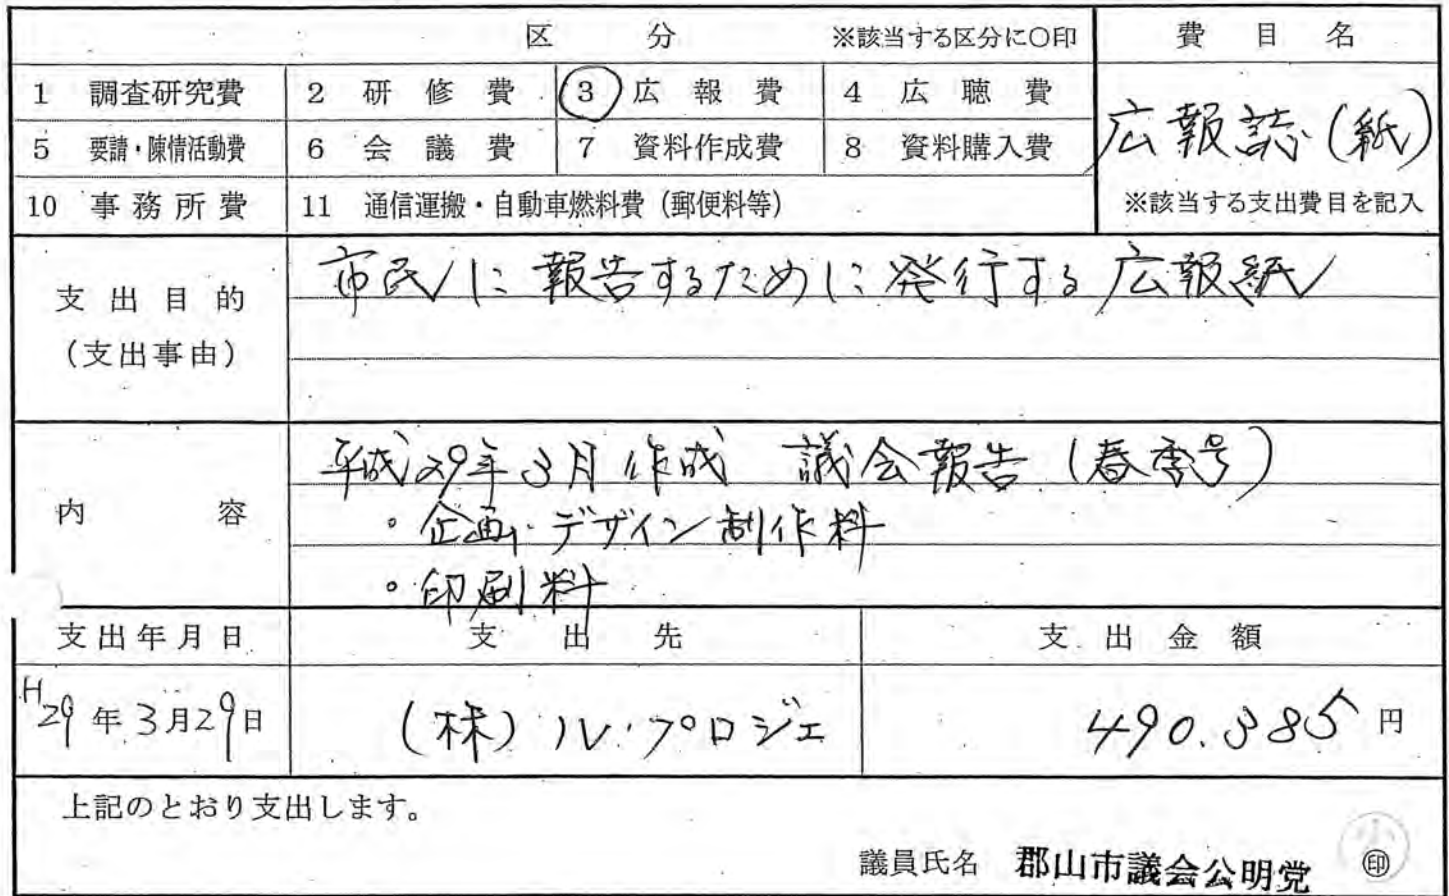 区　分　※該当する区分に〇印　費　目　名
1　調査研究費　2　研　修　費　3　広　報　費　4　広　聴　費　広報誌(紙)
5　要請・陳情活動費　6　会　議　費　7　資料作成費　8　資料購入費
10　事務所費　11　通信運搬・自動車燃料費（郵便料等）　※該当する支出費目を記入
支出目的　市民に報告するために発行する広報紙
（支出事由）
平成29年3月作成　議会報告（春季号）
内　容　。企画・デザイン制作料
。印刷料
支出年月日　支　出　先　支　出　金　額
H29年3月29日　(株)ル・プロジェ　490.385円
上記のとおり支出します。
議員氏名　郡山市議会公明党　印